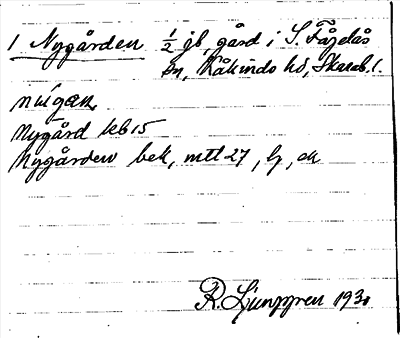 1 Nygården ½ jb, gård i S. Fågelås
sn, Kåkinds hd, Skarab. l.
nýgæn,
Nygård kb 15
Nygården bek, mtl 27, lj, ak
R. Ljunggren 1930